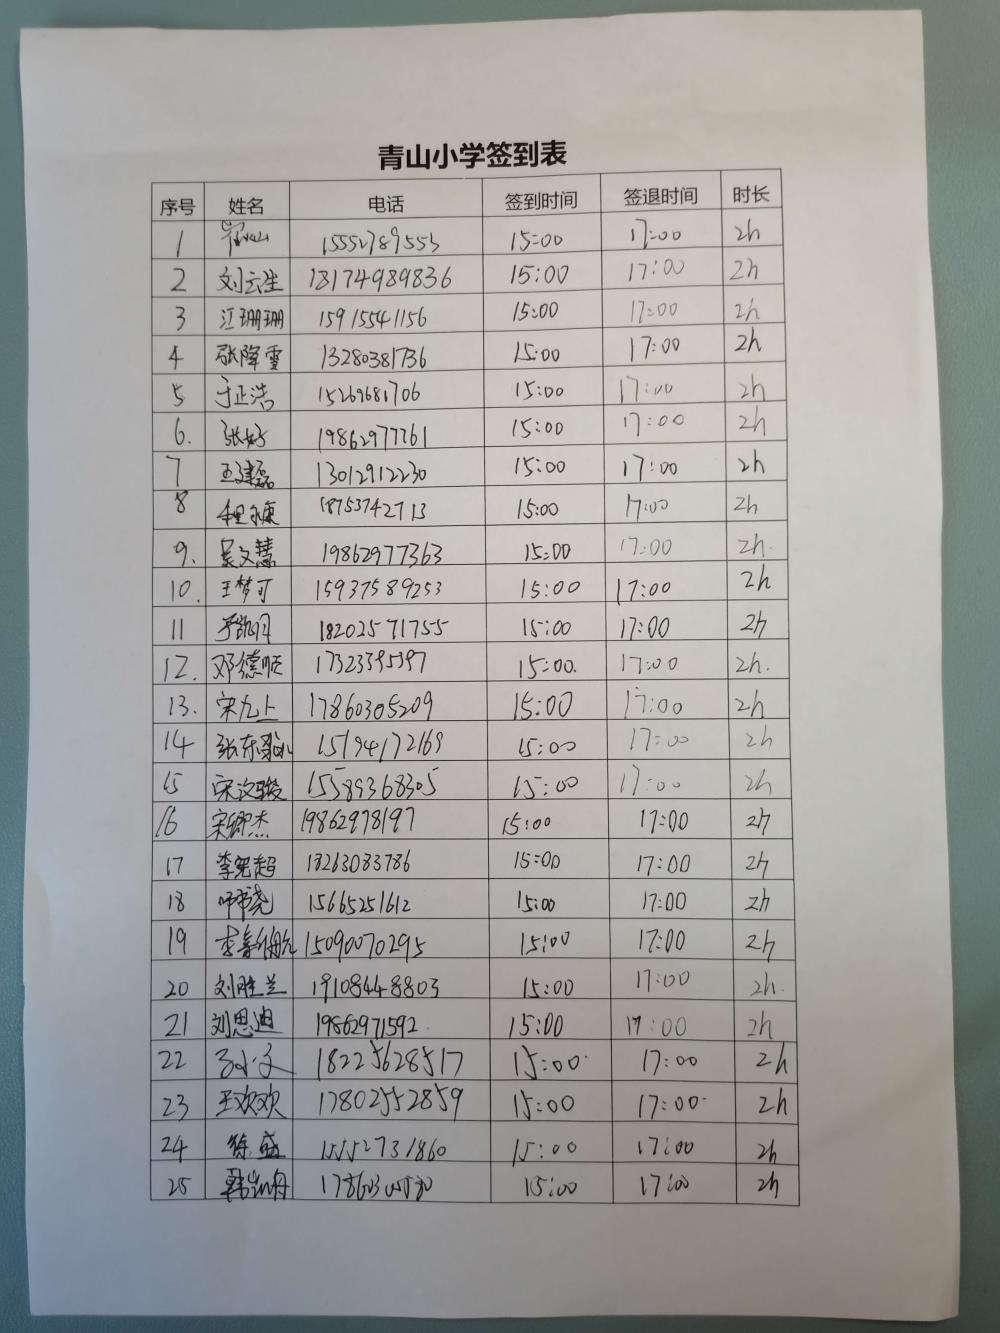 青山小学签到表
序号 姓名 电话 签到时间 签退时间 时长
1 15552789553 15:00 17:00 2h
2 刘云生 18174989836 15:00 17:00 2h
3 江珊珊 15915541156 15:00 17:00 2h
4 张降雪 13280381736 15:00 17:00 2h
5 于正浩 15269681706 15:00 17:00 2h
6. 张好 19862977761 15:00 17:00 2h
7 王建磊 13012912230 15:00 17:00 2h
8 程永康 18753742713 15:00 17:00 2h
9. 吴文慧 19862977363 15:00 17:00 2h.
10. 王梦可 15937589253 15:00 17:00 2h
11 18202571755 15:00 17:00 2h
12. 邓德顺 17323395397 15:00. 17:00 2h.
13. 宋九上 17860305209 15:00 17:00 2h
14 15194172169 15:00 17:00 2h
15 宋汶骏 15589368305 15:00 17:00 2h
16 宋卿杰 19862978197 15:00 17:00 2h
17 李宪超 18263083786 15:00 17:00 2h
18 15665251612 15:00 17:00 2h
19 15090070295 15:00 17:00 2h
20 刘胜兰 19108448803 15:00 17:00 2h.
21 刘思迪 19862971592. 15:00 17:00 2h
22 18225628517 15:00. 17:00 2h
23 王欢欢 17802552859 15:00 17:00. 2h
24 徐盛 15552731860 15:00 17:00 2h
25 15:00 17:00 2h